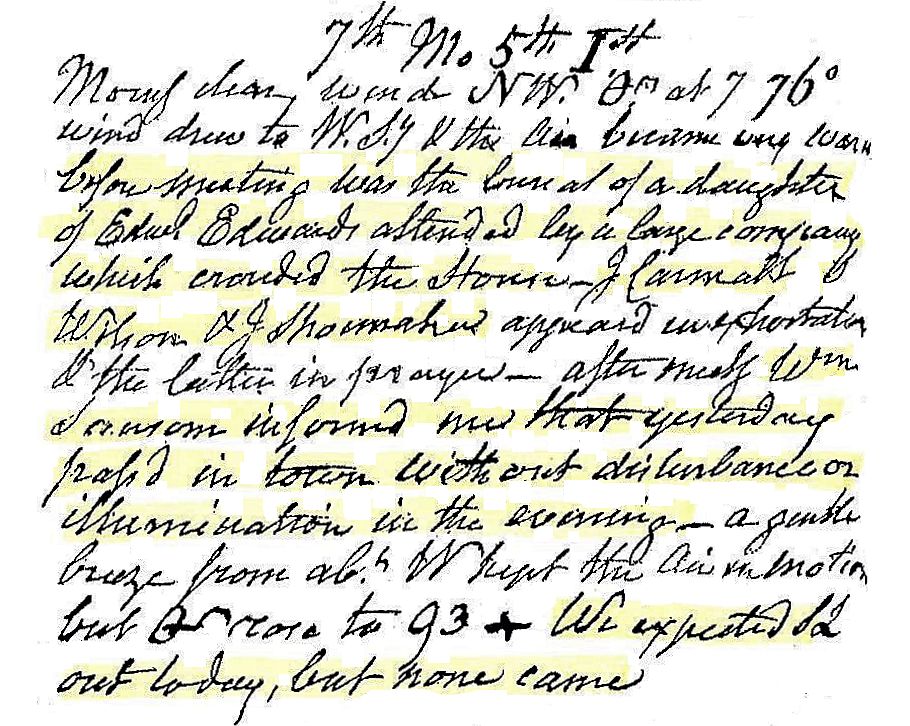 7th Mo 5th 1st
Morng clear, wind NW. at 7 76°
wind drew to W.S.ly & the Air became very warm
before meeting was the burial of a daughter
of Edwd. Edwards attended by a large company
which crowded the House – J Carmalt
Wilson & J Shoemaker appeard in exhortation
& the latter in prayer – after meetg Wm
Sansom informd me that yesterday
passd in town without disturbance or
illumination in the evening – a gentle
breeze from abt. W kept the Air in motion
but rose to 93 + We expected
out today, but none came